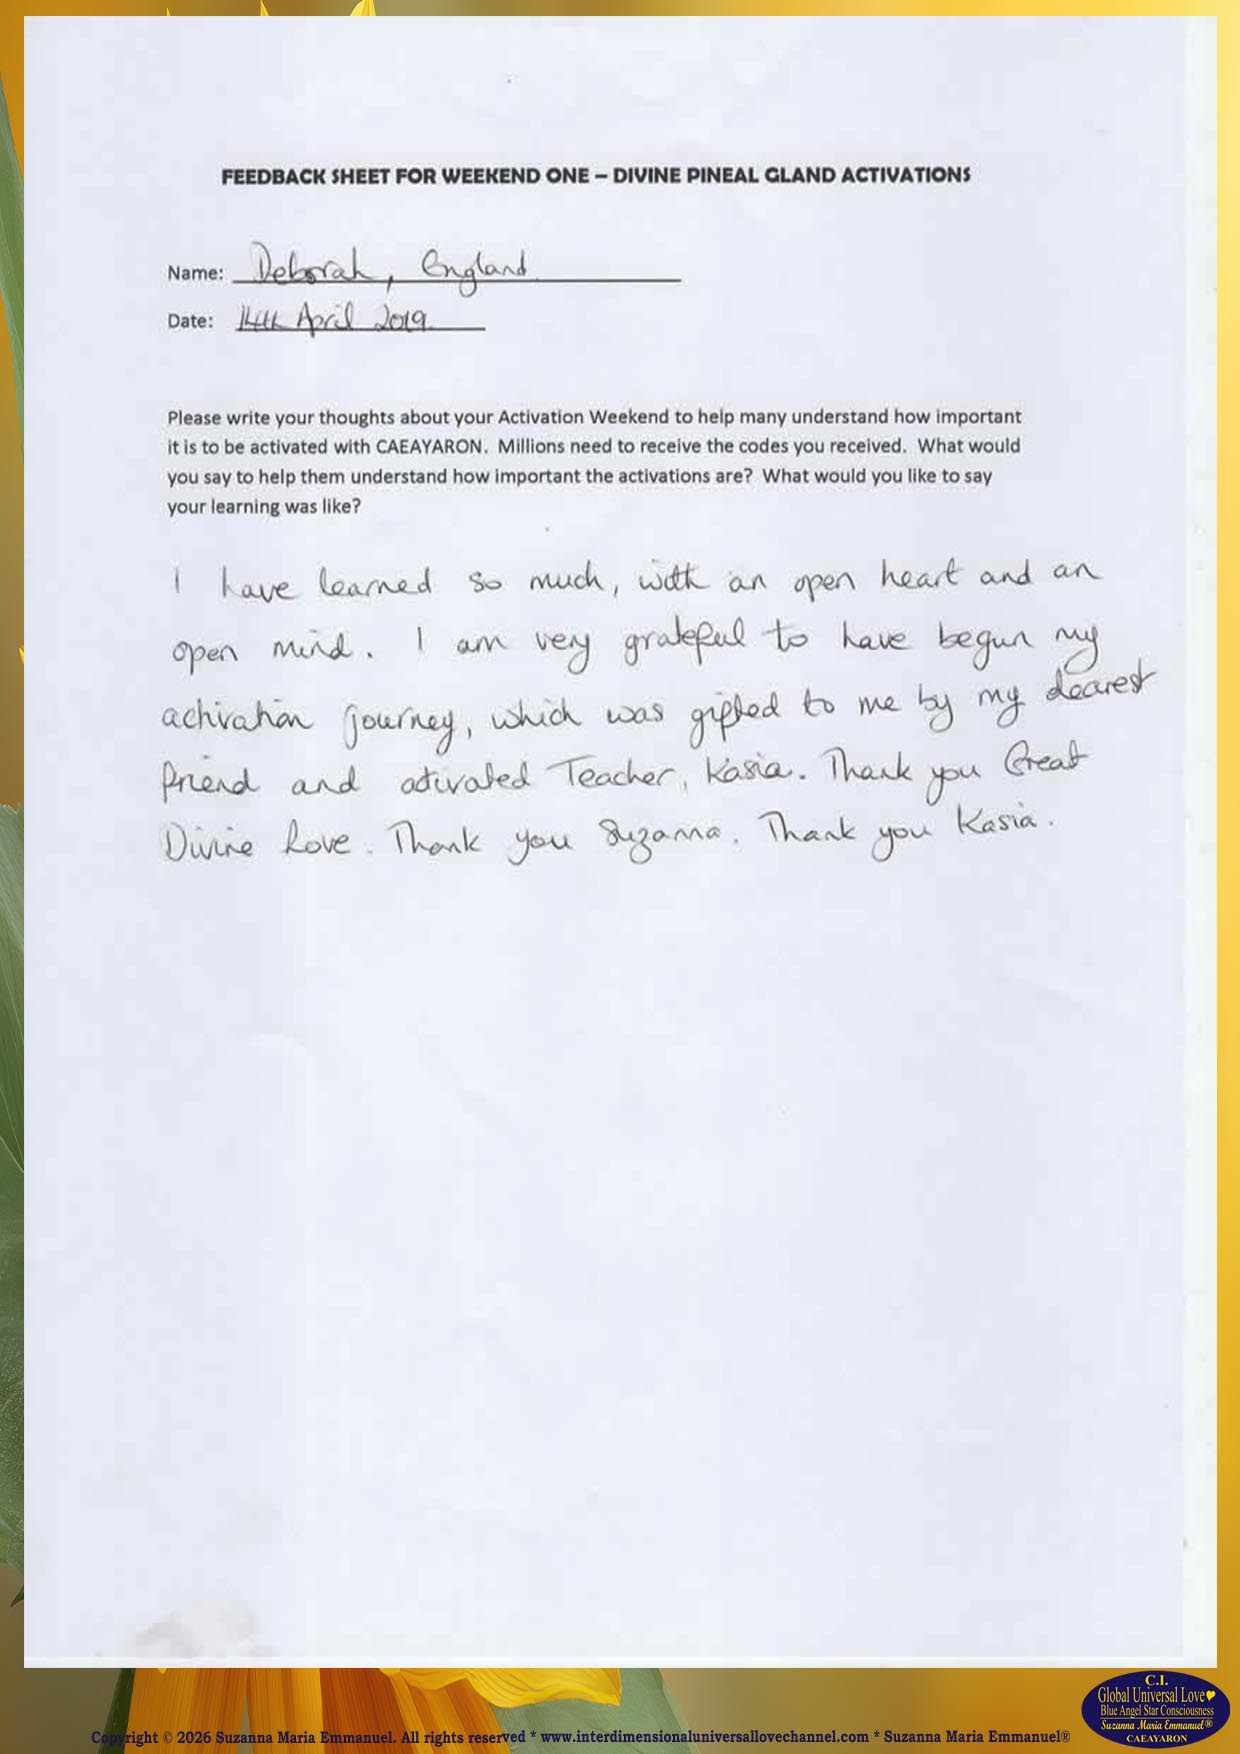 FEEDBACK SHEET FOR WEEKEND ONE – DIVINE PINEAL GLAND ACTIVATIONS
Name: Deborah, England
Date: 14th April 2019
Please write your thoughts about your Activation Weekend to help many understand how important
it is to be activated with CAEAYARON. Millions need to receive the codes you received. What would
you say to help them understand how important the activations are? What would you like to say
your learning was like?
I have learned so much, with an open heart and an
open mind. I am very grateful to have begun my
activation journey, which was gifted to me by my dearest
friend and activated Teacher, Kasia. Thank you Great
Divine Love. Thank you Suzanna. Thank you Kasia.
C.I.
Global Universal Love
Blue Angel Star Consciousness
Suzanna Maria Emmanuel®
CAEAYARON
Copyright © 2026 Suzanna Maria Emmanuel. All rights reserved * www.interdimensionaluniversallovechannel.com * Suzanna Maria Emmanuel®